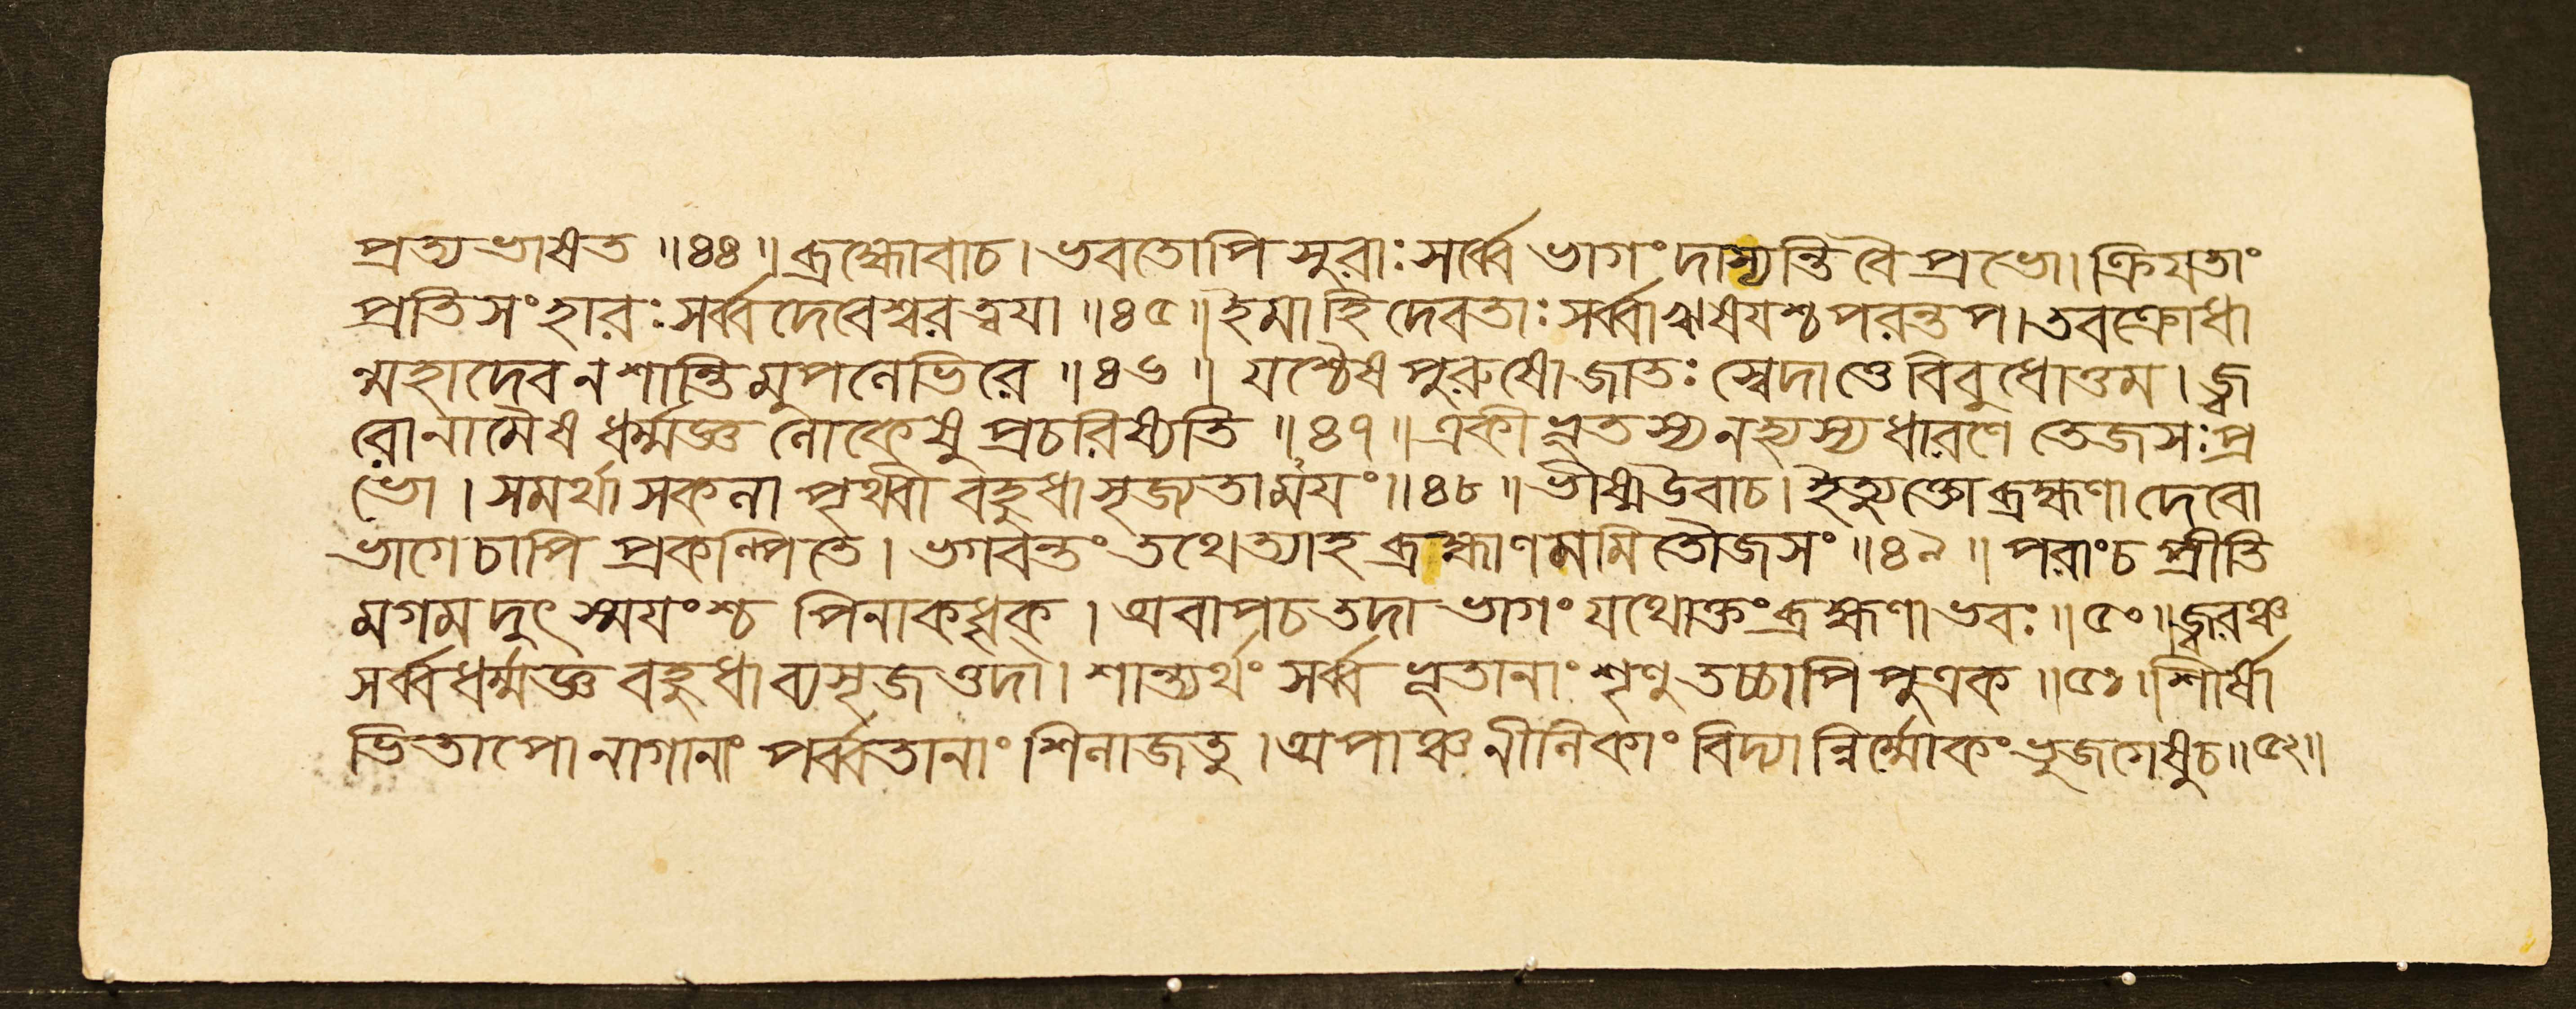 প্রত্যভাষত ॥৪৪॥ ব্রহ্মোবাচ। ভবতোপি সুরাঃ সর্ব্বে ভাগং দাস্যন্তি বৈ প্রভো। ক্রিযতাং
প্রতিসংহারঃ সর্ব্বদেবেশ্বর ত্বযা ॥৪৫॥ ইমা হি দেবতাঃ সর্ব্বা ঋষযশ্চ পরন্তপ। তব ক্রোধা
ন্মহাদেব ন শান্তিমুপলেভিরে ॥৪৬॥ যশ্চৈষ পুরুষো জাতঃ স্বেদাত্তে বিবুধোত্তম। জ্ব
রো নামৈষ ধর্ম্মজ্ঞ লোকেষু প্রচরিষ্যতি ॥৪৭॥ একীভূতস্য ন হ্যস্য ধারণে তেজসঃ প্র
ভো। সমর্থা সকলা পৃথ্বী বহুধা সৃজ্যতাময়ং ॥৪৮॥ ভীষ্ম উবাচ। ইত্যুক্তো ব্রহ্মণা দেবো
ভাগে চাপি প্রকল্পিতে। ভগবন্তং তথেত্যাহ ব্রহ্মাণমমিতৌজসং ॥৪৯॥ পরাং চ প্রীতি
মগমদুৎস্ময়ংশ্চ পিনাকধৃক্। অবাপ চ তদা ভাগং যথোক্তং ব্রহ্মণা ভবঃ ॥৫০॥ জ্বরঞ্চ
সর্ব্বধর্ম্মজ্ঞ বহুধা ব্যসৃজত্তদা। শান্ত্যর্থং সর্ব্বভূতানাং শৃণু তচ্চাপি পুত্রক ॥৫১। শীর্ষা
ভিতাপো নাগানাং পর্ব্বতানাং শিলাজতু। অপাঞ্চ নীলিকাং বিদ্যান্নির্ম্মোকং ভুজগেষু চ ॥৫২॥